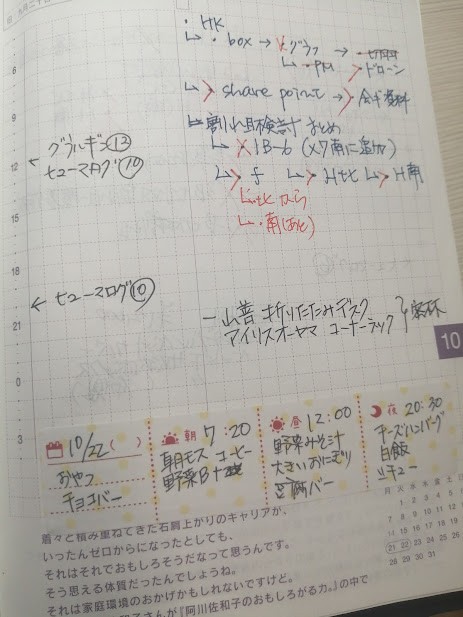 ・HK
↳・box → ×グラフ →
↳・PM ドローン
↳ share point → 会ギ資料
割れ目検討まとめ
↳ ×1B-b (×7南に追加)
↳ f ↳ H北 ↳ H南
↳北から
↳・南(あと)
6
9
12
15
18
21
0
3
← グラルギン⑬
ヒューマログ⑩
← ヒューマログ⑩
一山善 折りたたみデスク
アイリスオーヤマ コーナーラック
10
10/22 ( )
おやつ
チョコバー
朝 7:20
朝モス コーヒー
野菜B
昼 12:00
野菜みそ汁
大きいおにぎり
豆腐バー
夜 20:30
チーズハンバーグ
白飯
シチュー
着々と積み重ねてきた右肩上がりのキャリアが、
いったんゼロからになったとしても、
それはそれでおもしろそうだなって思うんです。
そう思える体質だったんでしょうね。
それは家庭環境のおかげかもしれないですけど。
さんが『阿川佐和子のおもしろがる力。』の中で
月 火 水 木 金 土 日
1 2 3 4 5 6
7 8 9 10 11 12 13
14 15 16 17 18 19 20
21 22 23 24 25 26 27
28 29 30 31